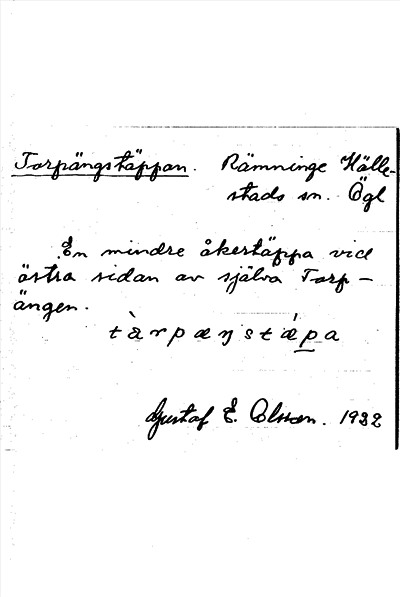 Torpängstäppan. Rämninge Hälle-
stads sn. Ögl
En mindre åkertäppa vid
östra sidan av själva Torp-
ängen.
tàrpæŋstǽpa
Gustaf E. Olsson. 1932